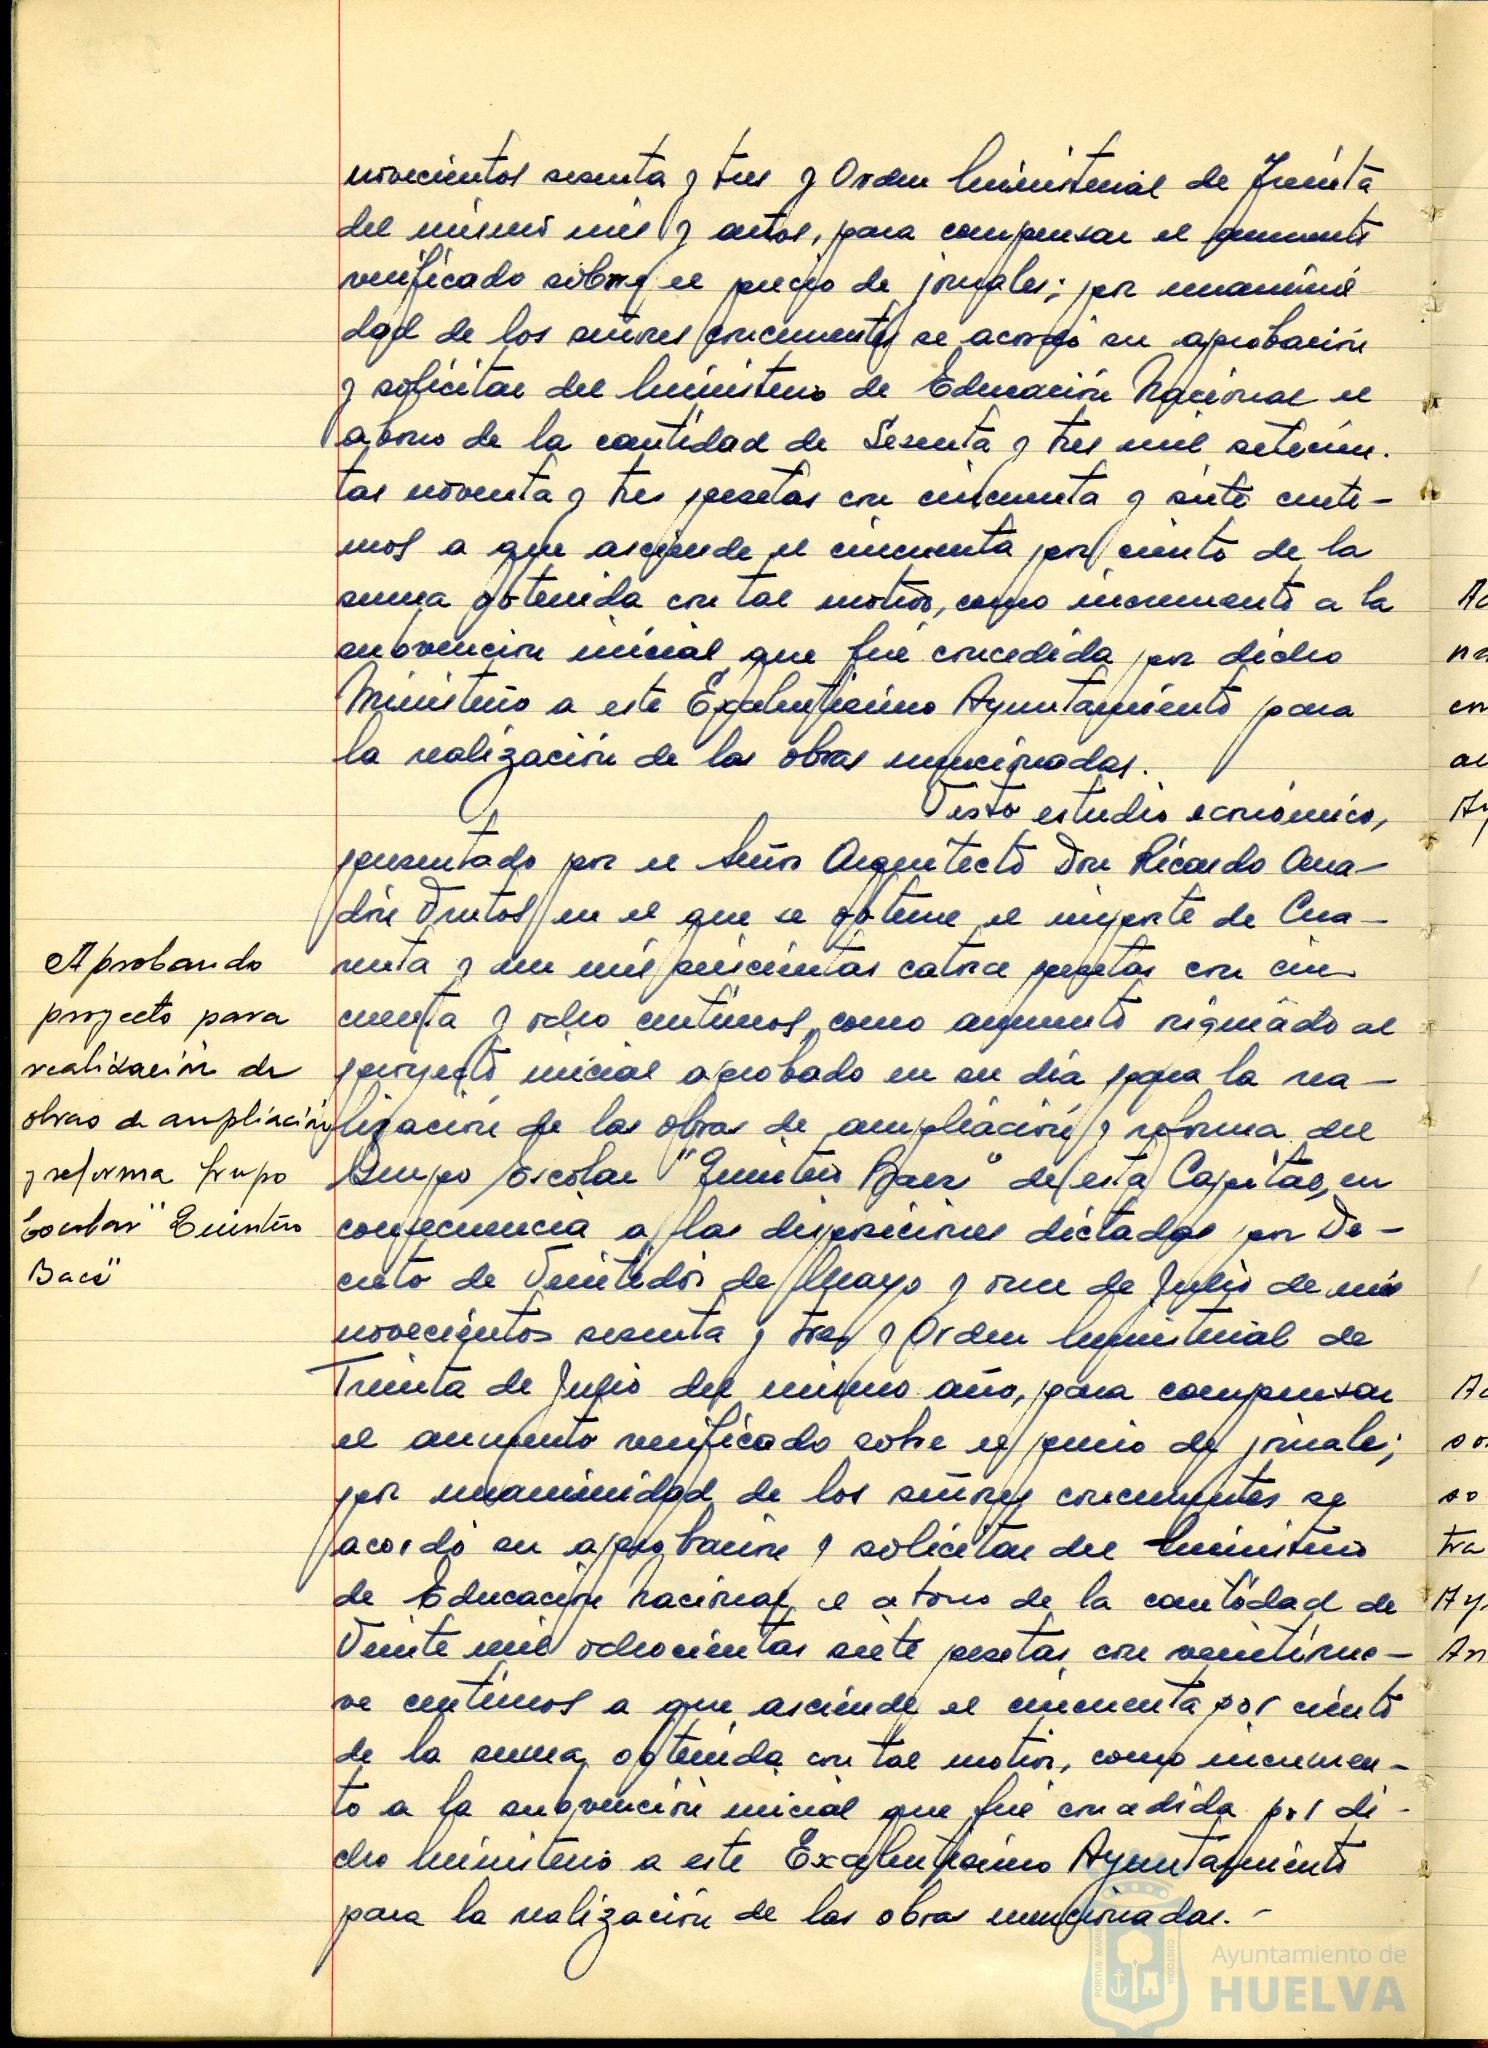 novecientos sesenta y tres y Orden Ministerial de Treinta
del mismo mes y años, para compensar el aumento
verificado sobre el precio de jornales; por unanimi
dad de los señores concurrentes se acordó su aprobación
y solicitar del Ministerio de Educación Nacional el
abono de la cantidad de Sesenta y tres mil setecien.
tas noventa y tres pesetas con cincuenta y siete cénti-
mos a que asciende el cincuenta por ciento de la
suma obtenida con tal motivo, como incremento a la
subvención inicial que fué concedida por dicho
Ministerio a este Excelentísimo Ayuntamiento para
la realización de las obras mencionadas.
Visto estudio económico,
presentado por el Señor Arquitecto Don Ricardo Ana-
dón Frutos en el que se obtiene el importe de Cua-
renta y un mil seiscientas catorce pesetas con cin
cuenta y ocho céntimos, como aumento originado al
proyecto inicial aprobado en su día para la rea-
lización de las obras de ampliación y reforma del
Grupo Escolar "Quintero Baez" de esta Capital, en
consecuencia a las disposiciones dictadas por De-
creto de Veintidós de Mayo y once de Julio de mil
novecientos sesenta y tres y Orden Ministerial de
Treinta de Julio del mismo año, para compensar
el aumento verificado sobre el precio de jornales;
por unanimidad de los señores concurrentes se
acordó su aprobación y solicitar del Ministerio
de Educación nacional el abono de la cantidad de
Veinte mil ochocientas siete pesetas con veintinue-
ve céntimos a que asciende el cincuenta por ciento
de la suma obtenida con tal motivo, como incremen-
to a la subvención inicial que fué concedida por di-
cho Ministerio a este Excelentísimo Ayuntamiento
para la realización de las obras mencionadas.-
Aprobando
proyecto para
realización de
obras de ampliación
y reforma Grupo
Escolar "Quintero
Baez"
Ay
Ay
Ayuntamiento de
HUELVA